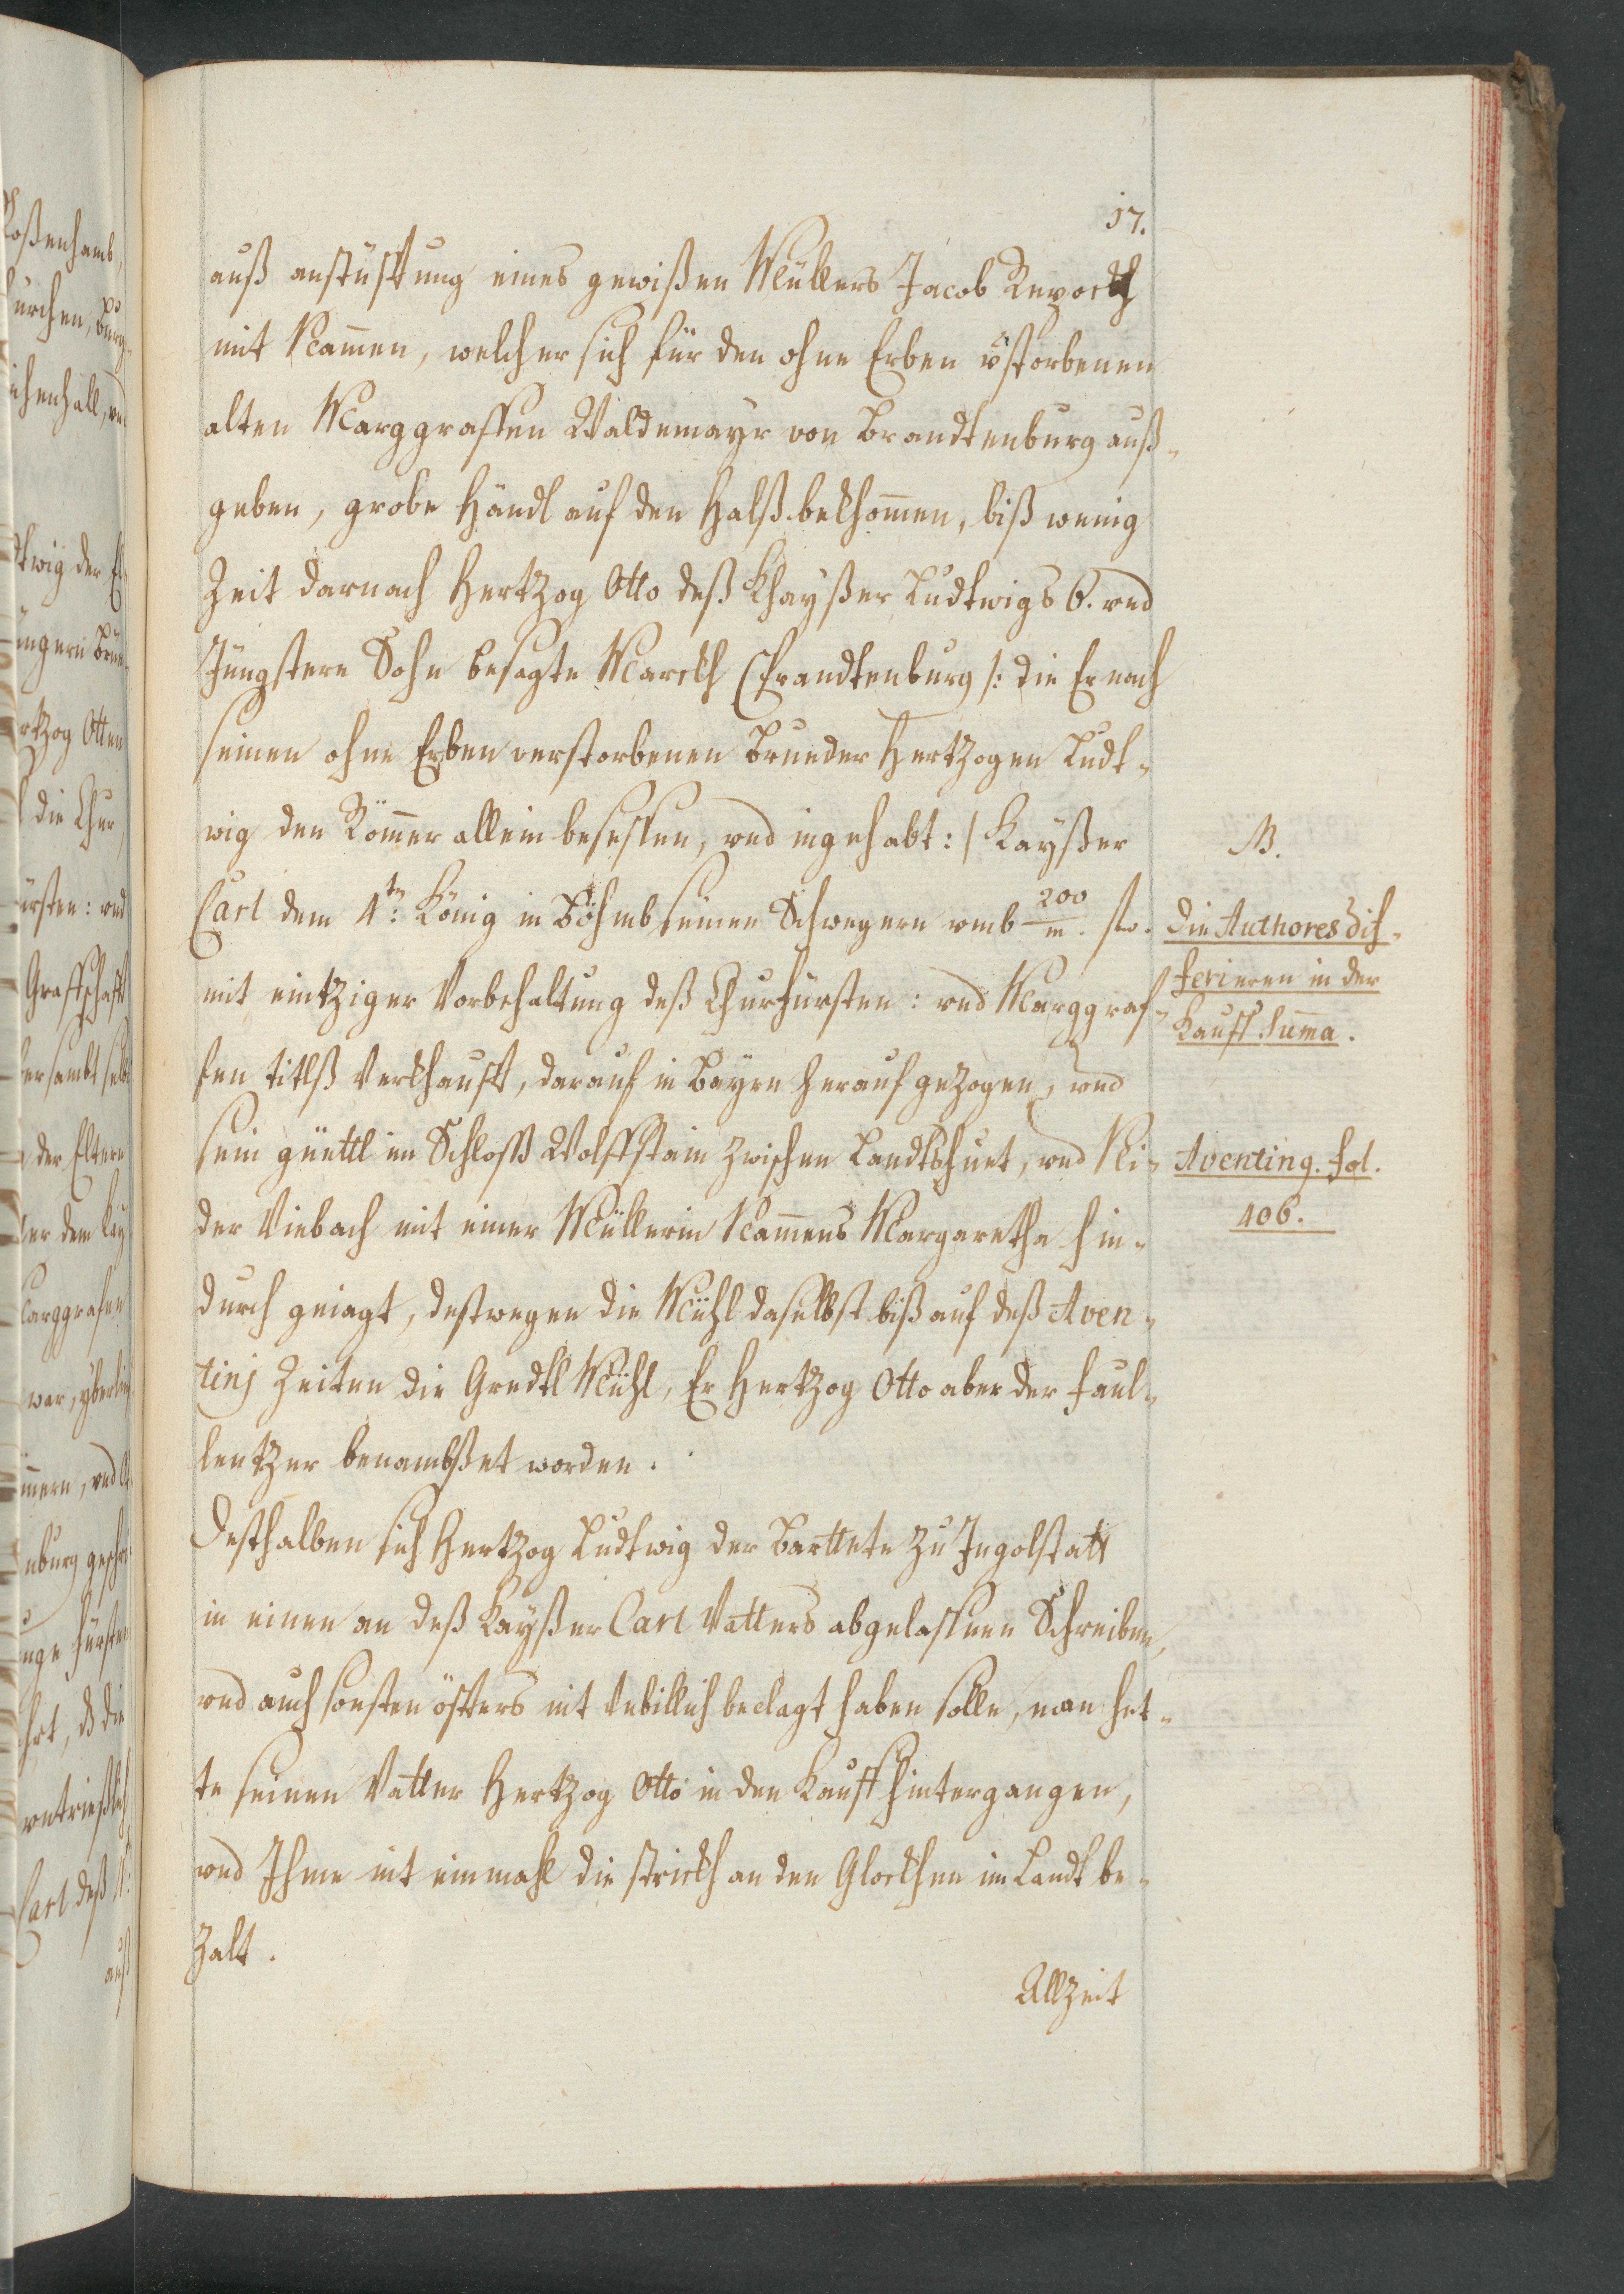 17.
auß anstüfftung eines gewißen Müllers Jacob Repockh
mit Nam̄en, welcher sich für den ohne Erben v̈storbenen
alten Marggraffen Waldemayr von Brandtenburg auß-
geben, grobe Händl auf den Halß bekhom̄en, biß wenig
Zeit darnach Hertzog Otto deß Khayßer Ludtwigs 6. vnd
Jüngstere Sohn besagte Marckh Brandtenburg /: die Er nach
seinen ohne Erben verstorbenen Brueder Hertzogen Ludt-
wig den Röm̄er allein besessen, vnd ingehabt: / Kayßer
Carl dem 4tn: König in Böhmb seinen Schwegern vmb 200/m. fl.
mit eintziger Vorbehaltung deß Churfürsten: vnd Marggraf-
fen titlß verkhaufft, darauf in Bayrn herauf gezogen, vnd
sein güettl im Schloß Wolffstain zwischen Landtshuet, vnd Ni-
der Viebach mit einer Müllerin Nam̄ens Margaretha hin-
durch geiagt, destwegen die Mühl daselbst biß auf deß Aven-
tinj Zeiten die Gredtl Mühl, Er Hertzog Otto aber der faul-
lentzer benambßet worden.
Desthalben sich Hertzog Ludtwig der Barttete zu Ingolstatt
in einen an deß Kayßer Carl Vatters abgelassnen Schreiben,
vnd auch sonsten öffters nit vnbillich beclagt haben solle, man het-
te seinen Vatter Hertzog Otto in den Kauff hintergangen,
vnd Ihme nit einmahl die strickh an den Glockhen im Landt be-
zalt.
Allzeit
NB.
die Authores dif-
ferieren in der
Kauff Sum̄a.
Aventing. fol.
406.